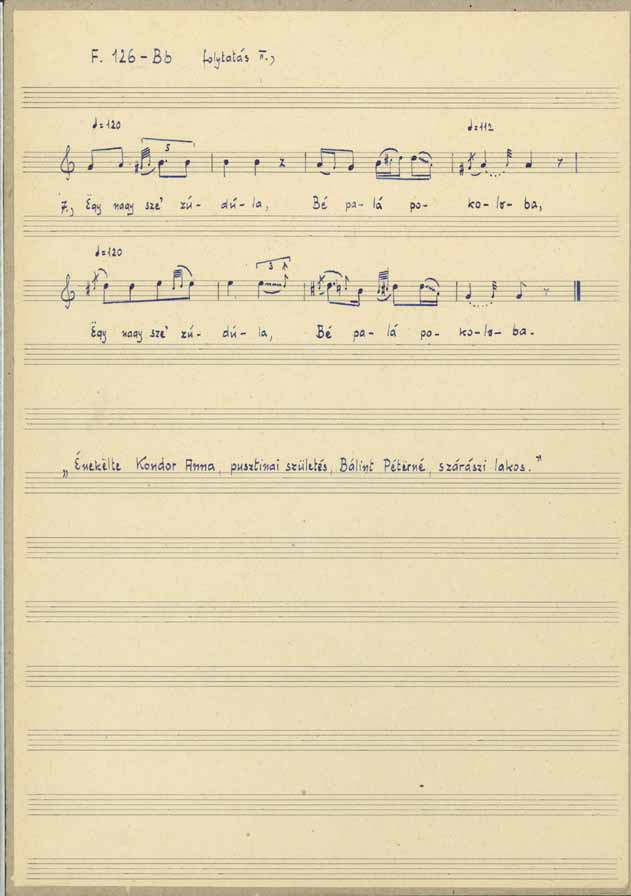 F. 126 - Bb folytatás II.,
♩=120 ♩=112
5
7., Ëgy nagy sze' zú- dú- la, Bé pa- lá po- ko- lo- ba,
♩=120
3
Ëgy nagy sze' zú- dú- la, Bé pa- lá po- ko- lo- ba.
„Énekëlte Kondor Anna, pusztinai születés, Bálint Pétërné, szárászi lakos."